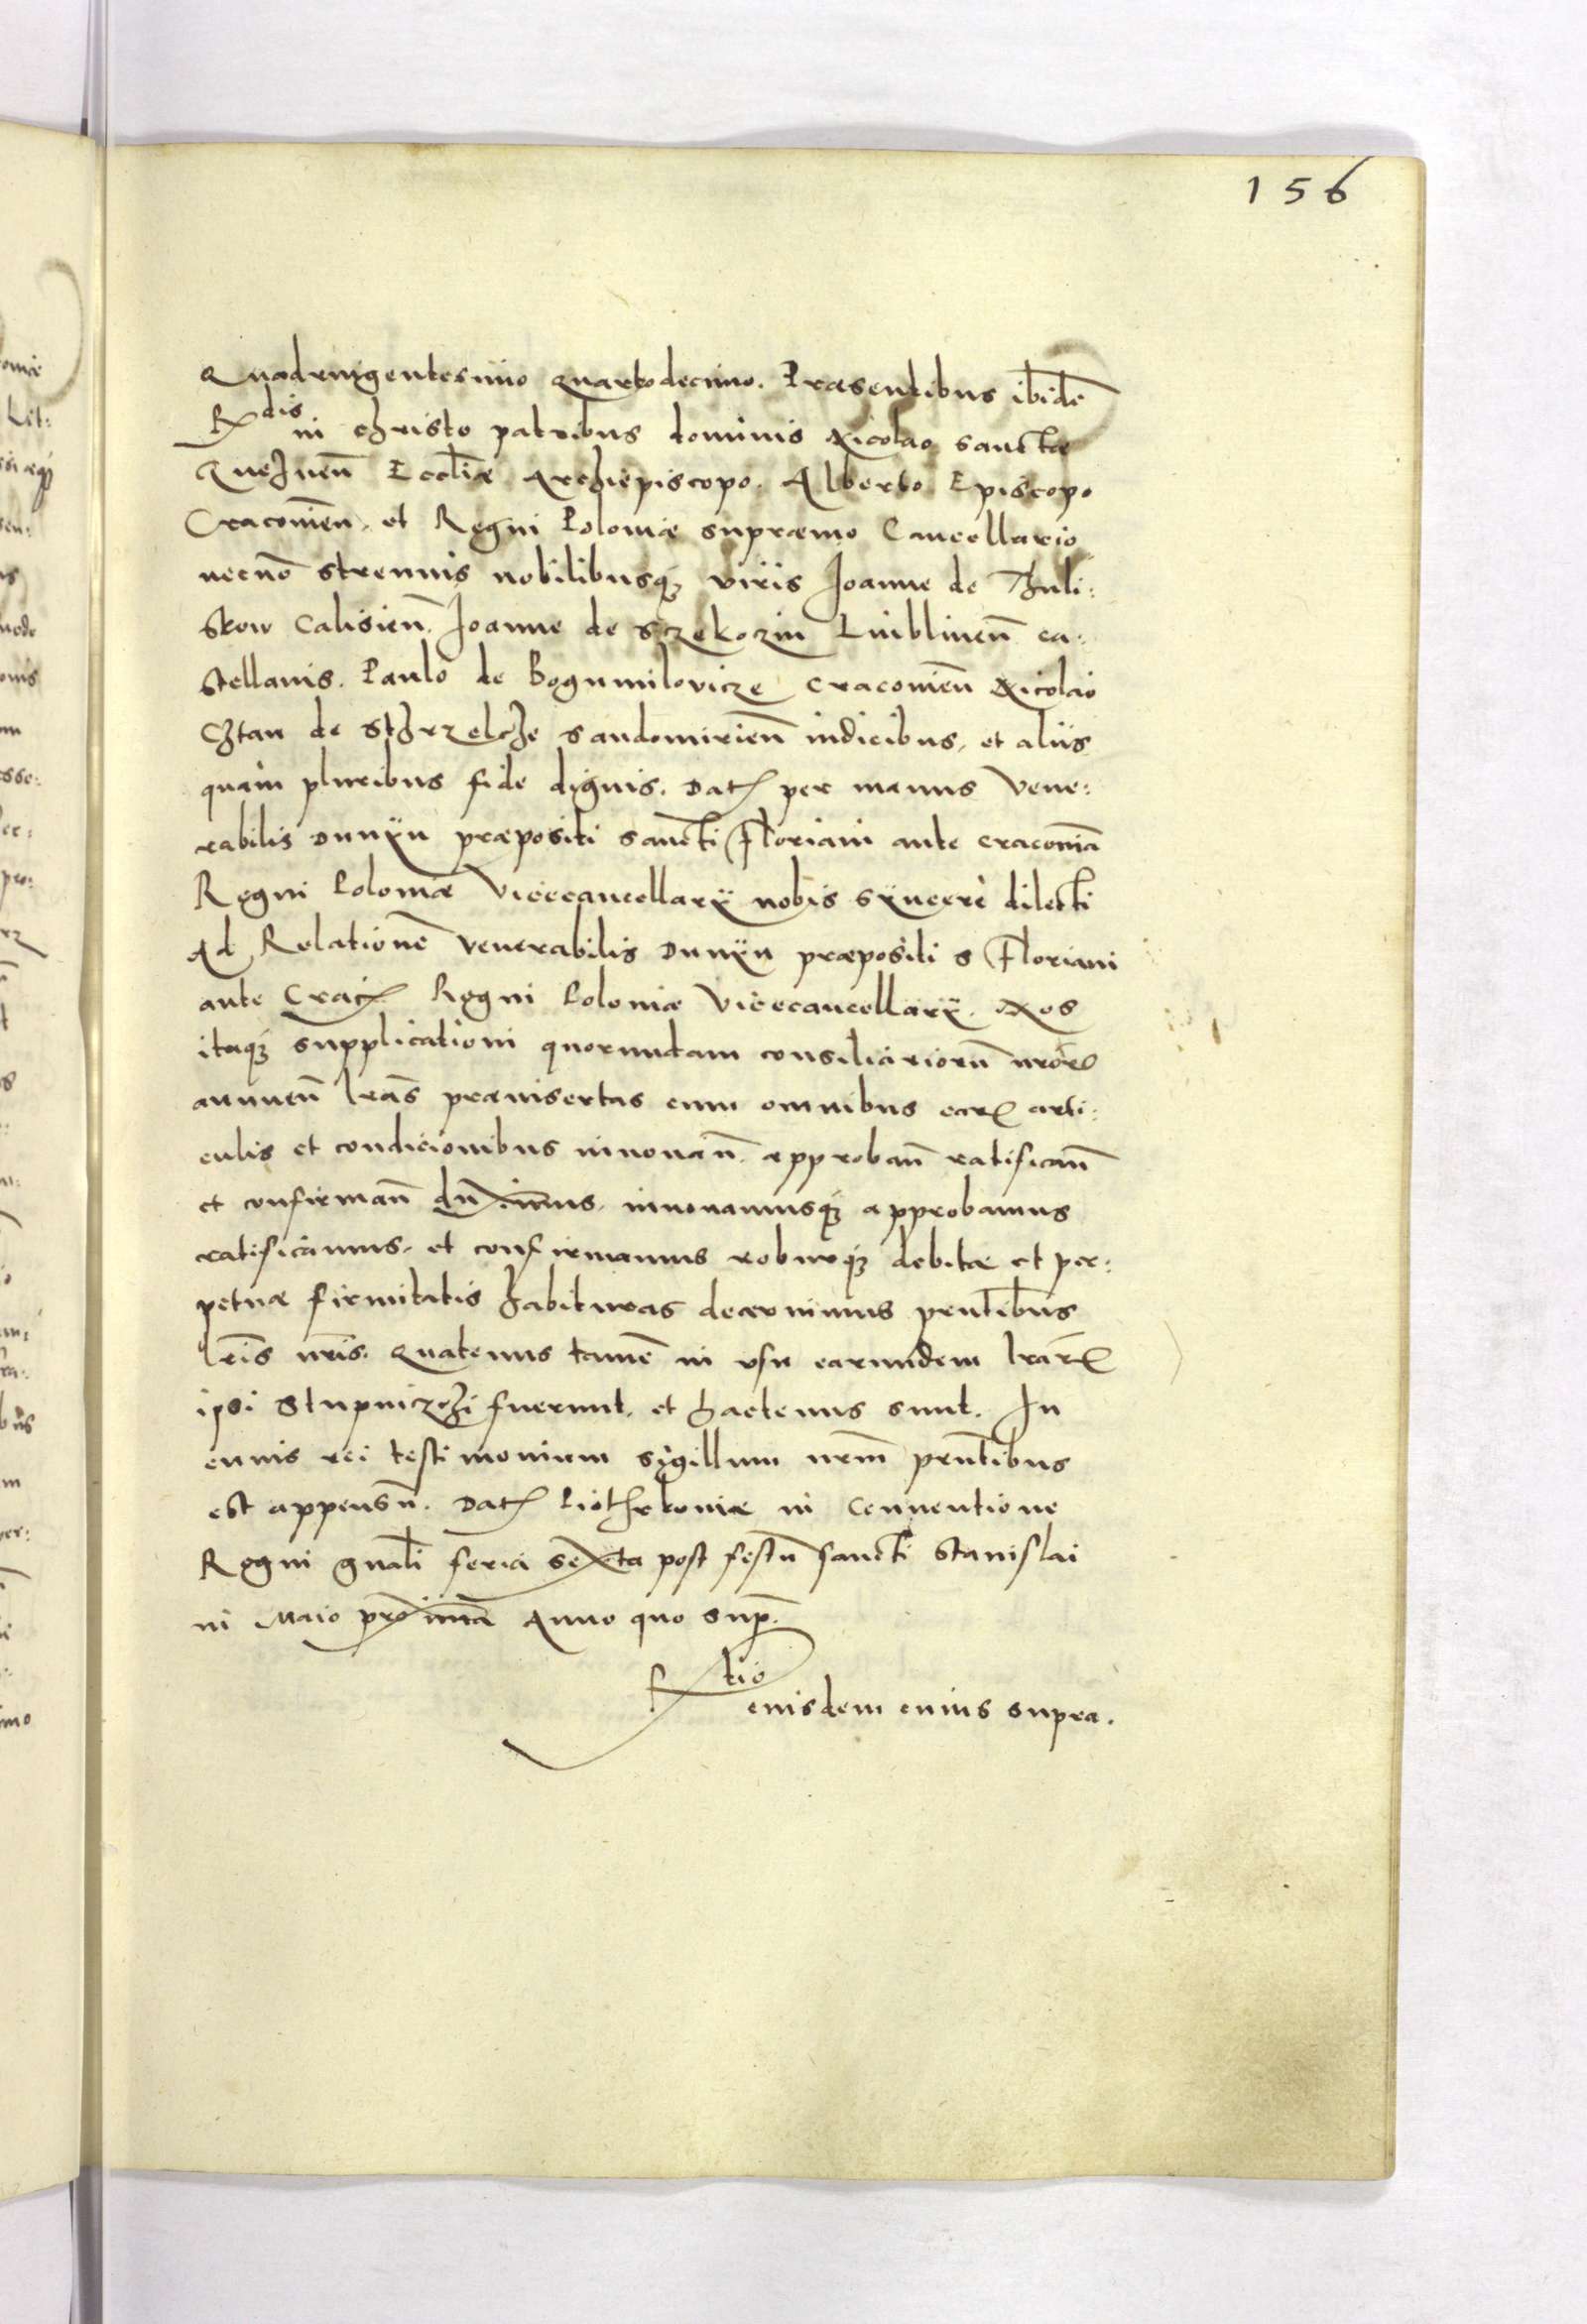 156
Quadringentesimo quartodecimo. Praesentibus ibidē
Rdis in christo patribus dominis Nicolao sanctae
Gneznen̄ Eccliæ Archiepiscopo. Alberto Episcopo
Cracovien̄. et Regni Poloniæ supræmo Cancellario
necnō strenuis nobilibusq; viris Joanne de Thuli:
skow Calisien̄. Joanne de Sczekozin Lublinen̄ ca:
stellanis. Paulo de Bogumilovicze Cracovien̄ Nicolao
Chtan de Sthrzelche Sandomirien̄ iudicibus, et aliis
quam pluribus fide dignis. Dat per manus Vene:
rabilis Dunyn præpositi sancti Floriani ante Cracoviā
Regni Poloniæ Vicecancellarÿ nobis sÿncerè dilecti
Ad Relationē Venerabilis Dunyn præpositi S Floriani
ante Crac Regni Poloniæ Vicecancellarÿ. Nos
itaq; supplicationi quorundam consiliariorū nrōr
annuen̄ lrās præinsertas cum omnibus ear arti:
culis et condicionibus innovan̄. approban̄ ratifican̄
et confirman̄ dūximus. innovamusq; approbamus
ratificamus, et confirmamus roburq; debitæ et per:
petuæ firmitatis habituras decernimus pn̄tibus
lrīs nrīs. Quatenus tamē in usu earundem lrār
ipsi Stupniczchi fuerunt, et hactenus sunt. In
cuius rei testimonium sigillum nrm̄ prn̄tibus
est appensū. Dat Piothrkoviæ in Conventione
Regni gn̄ali feria sexta post festū sancti Stanislai
in Maio proximā Anno quo sup.
Rtio
eiusdem cuius supra.